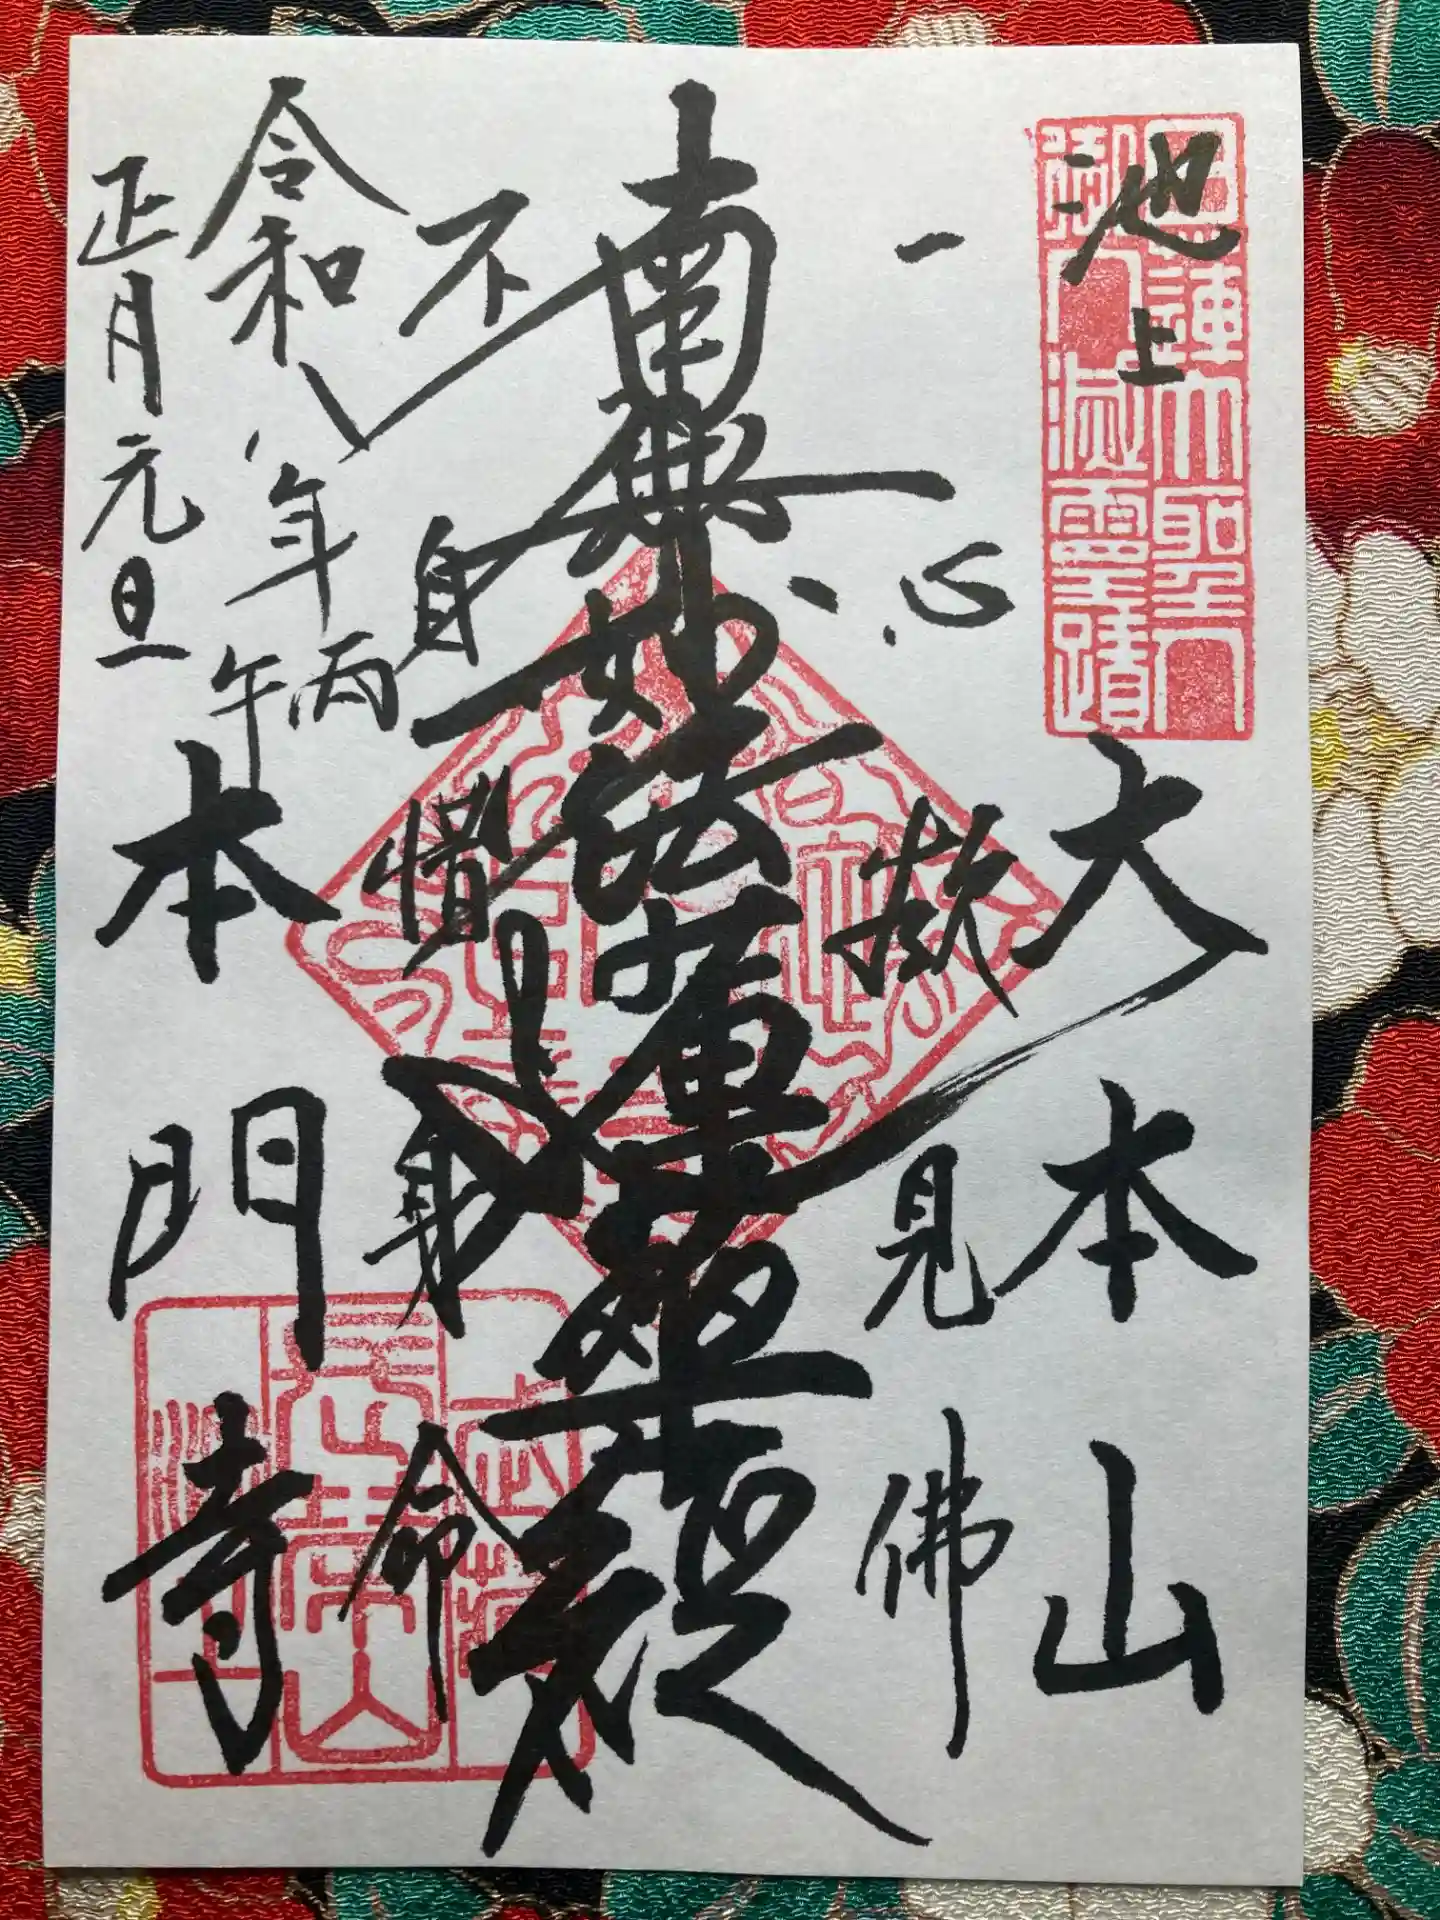 池上
大本山
一心欲見佛
南無妙法蓮華経
不自惜身命
令和八年丙午
正月元旦
本門寺
日蓮大聖人
御入滅霊蹟
長榮山